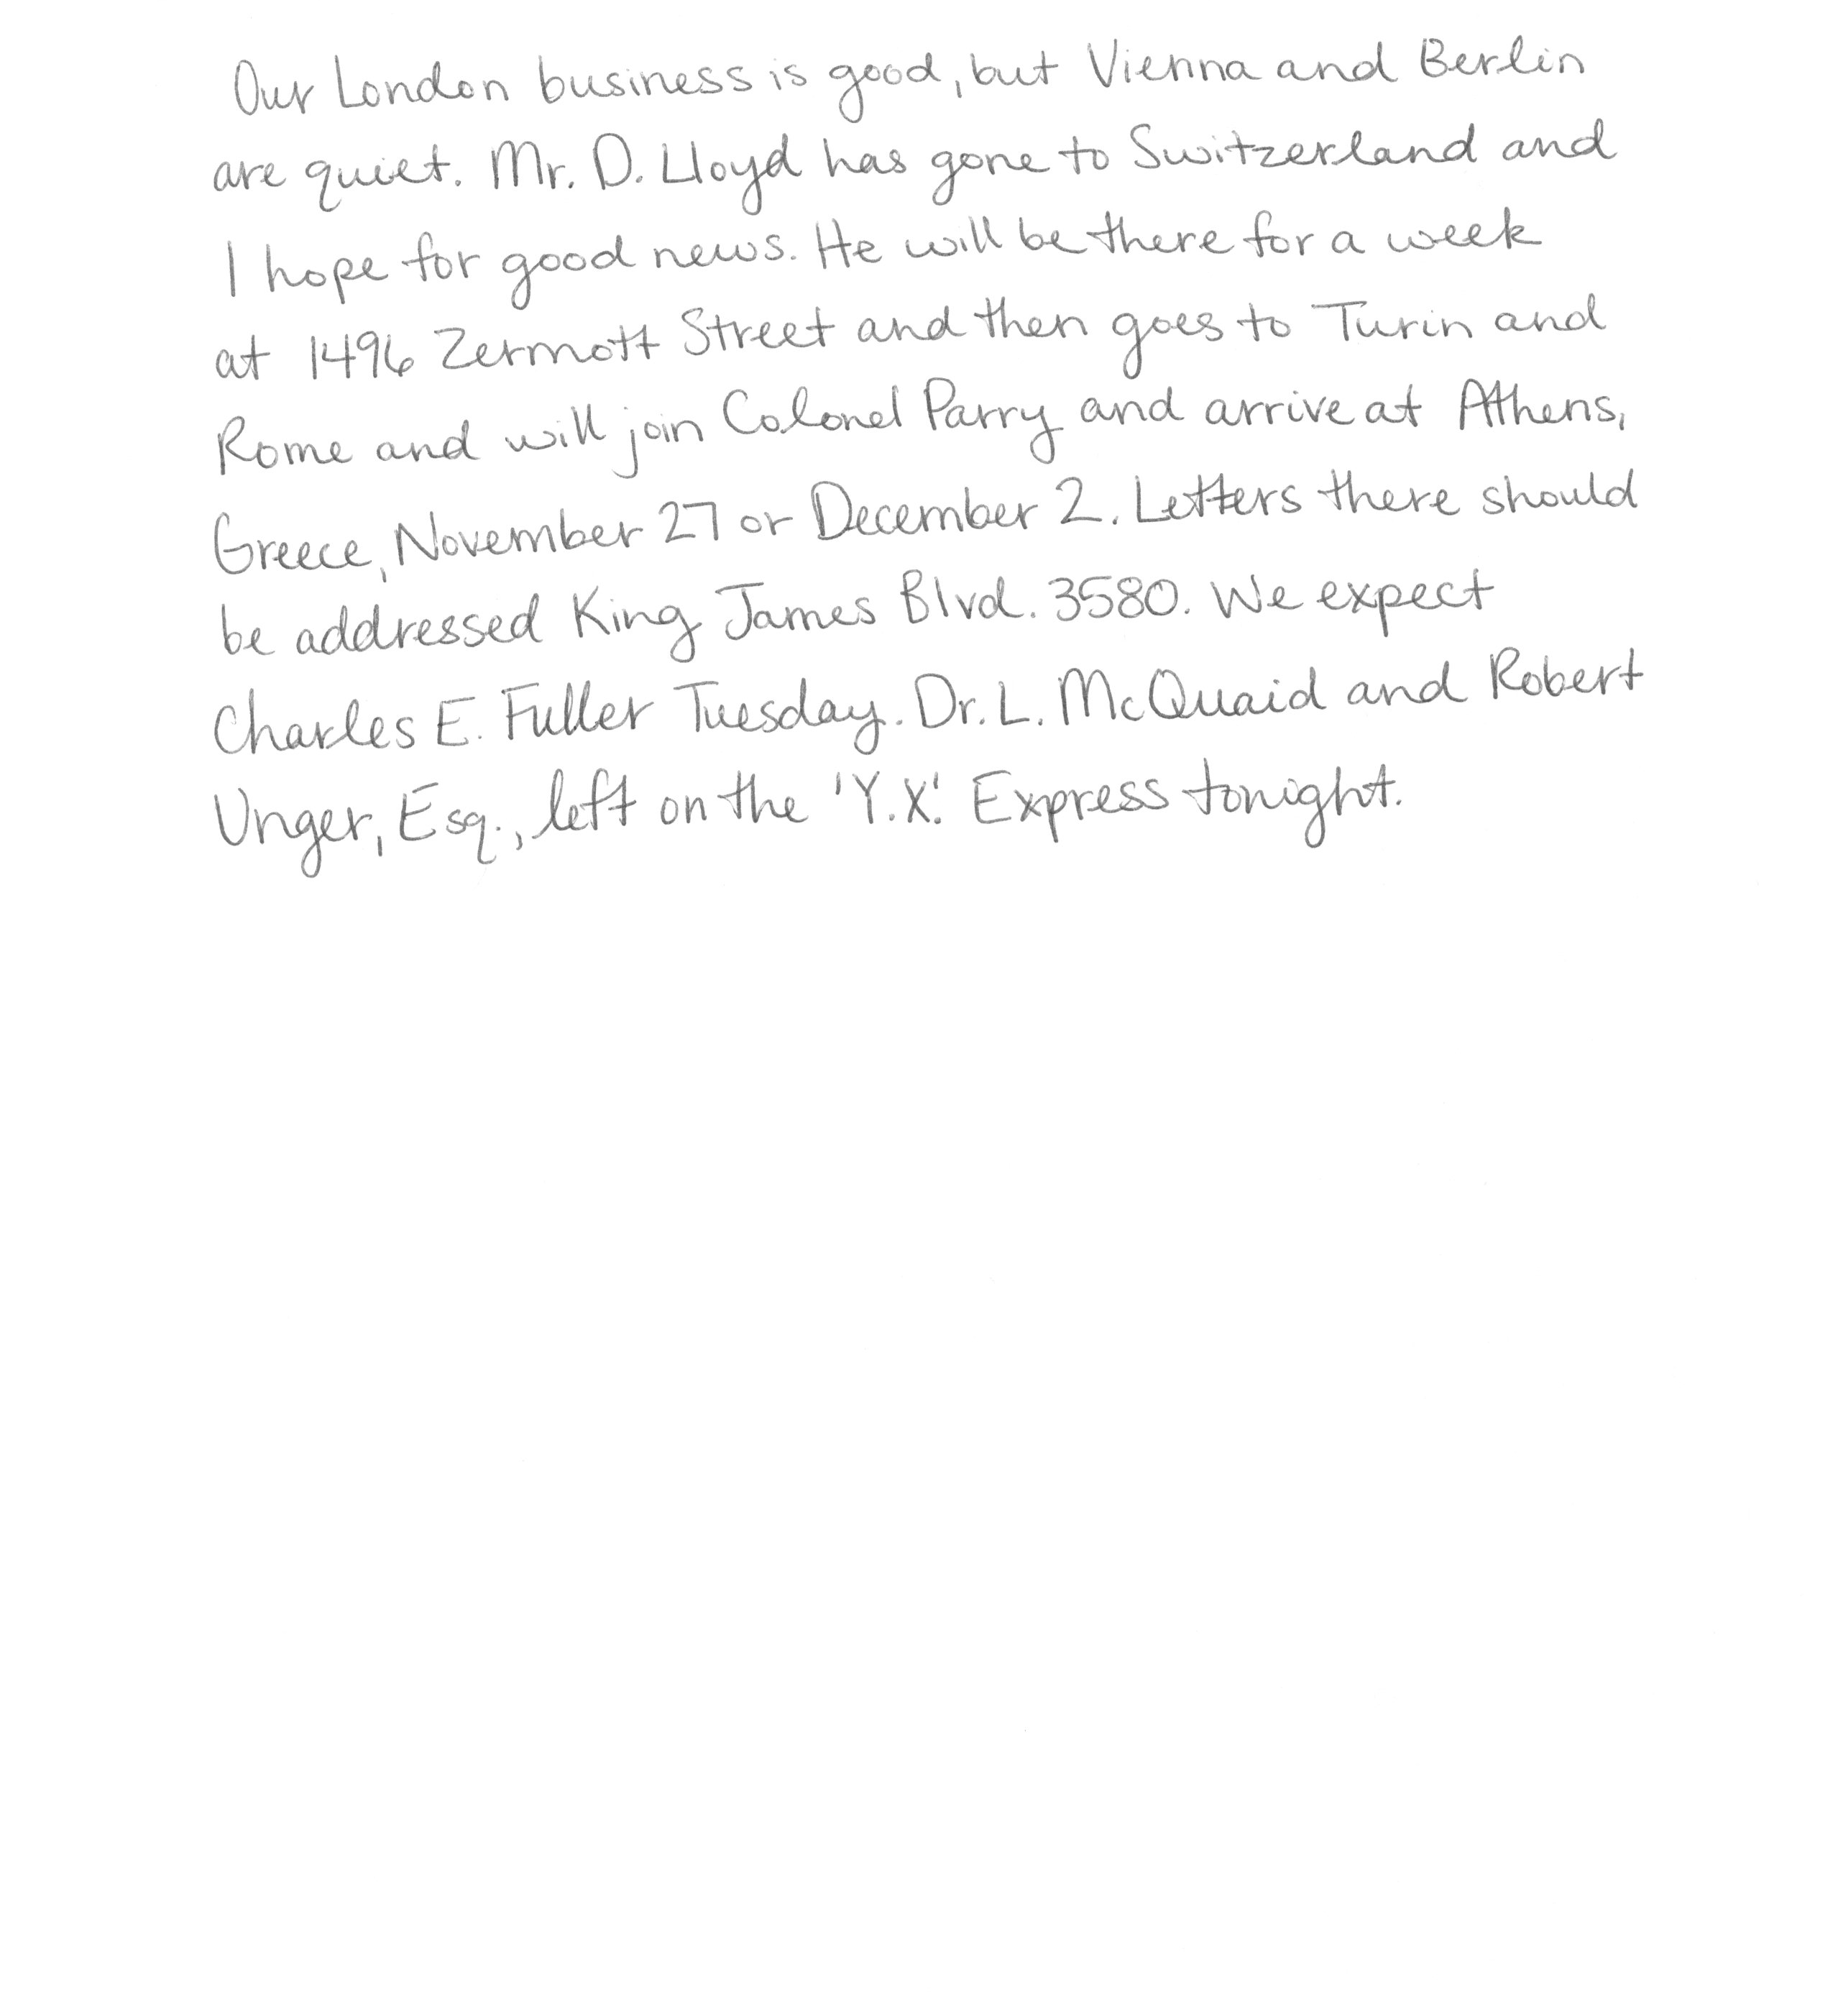 Our London business is good, but Vienna and Berlin
are quiet. Mr. D. Lloyd has gone to Switzerland and
I hope for good news. He will be there for a week
at 1496 Zermott Street and then goes to Turin and
Rome and will join Colonel Parry and arrive at Athens,
Greece, November 27 or December 2. Letters there should
be addressed King James Blvd. 3580. We expect
Charles E. Fuller Tuesday. Dr. L. McQuaid and Robert
Unger, Esq., left on the 'Y.X.' Express tonight.